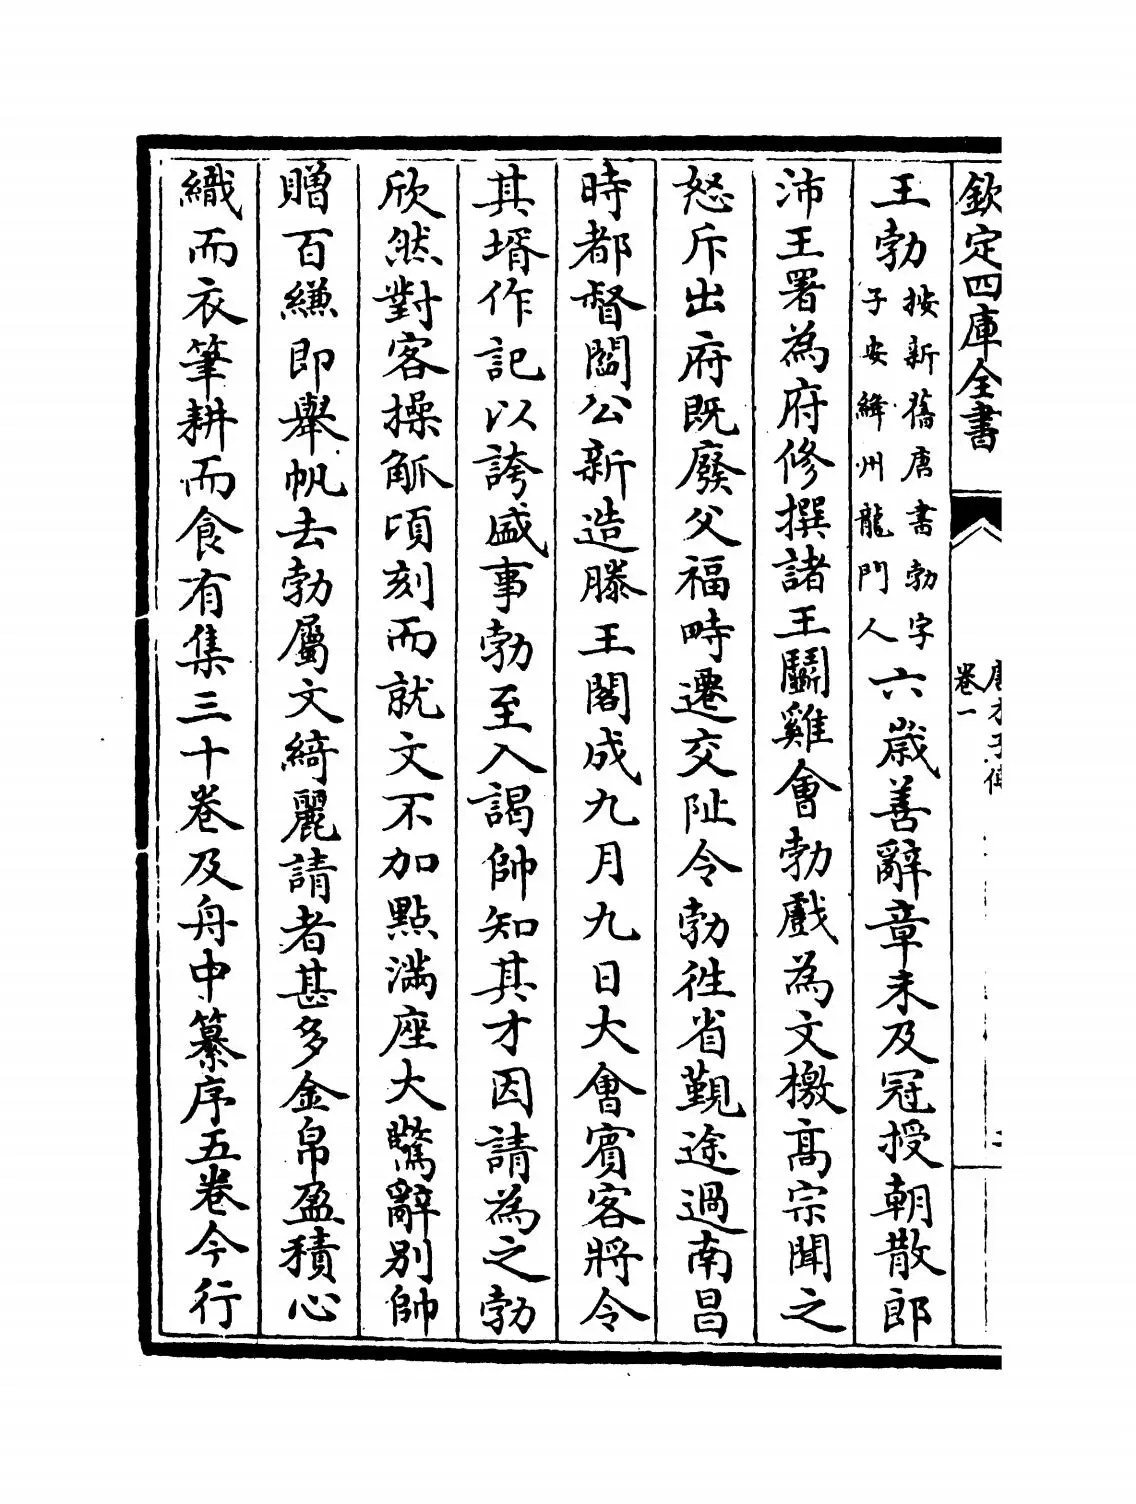 欽定四庫全書
卷一
王勃按新舊唐書勃字子安絳州龍門人六歲善辭章未及冠授朝散郎
沛王署為府修撰諸王鬭雞會勃戲為文檄高宗聞之
怒斥出府既廢父福畤遷交阯令勃往省覲途過南昌
時都督閻公新造滕王閣成九月九日大會賓客將令
其壻作記以誇盛事勃至入謁帥知其才因請為之勃
欣然對客操觚頃刻而就文不加點滿座大驚辭别帥
贈百縑即舉帆去勃屬文綺麗請者甚多金帛盈積心
織而衣筆耕而食有集三十卷及舟中纂序五卷今行